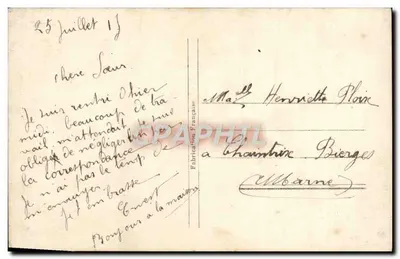 25 Juillet 15
Chere Sœur
Je suis rentré Hier
midi, beaucoup de tra
vail, m'attendait, je suis
obligé de négliger
la correspondance
Je n'ai pas le temp de
m'ennuyer.
Je t'embrasse
Ernest
Bonjour a la maison
CPA-PHILA.COM
Fabrication Française
Ma elle Henriette Ploix
a Chaintrix Bierges
(Marne)